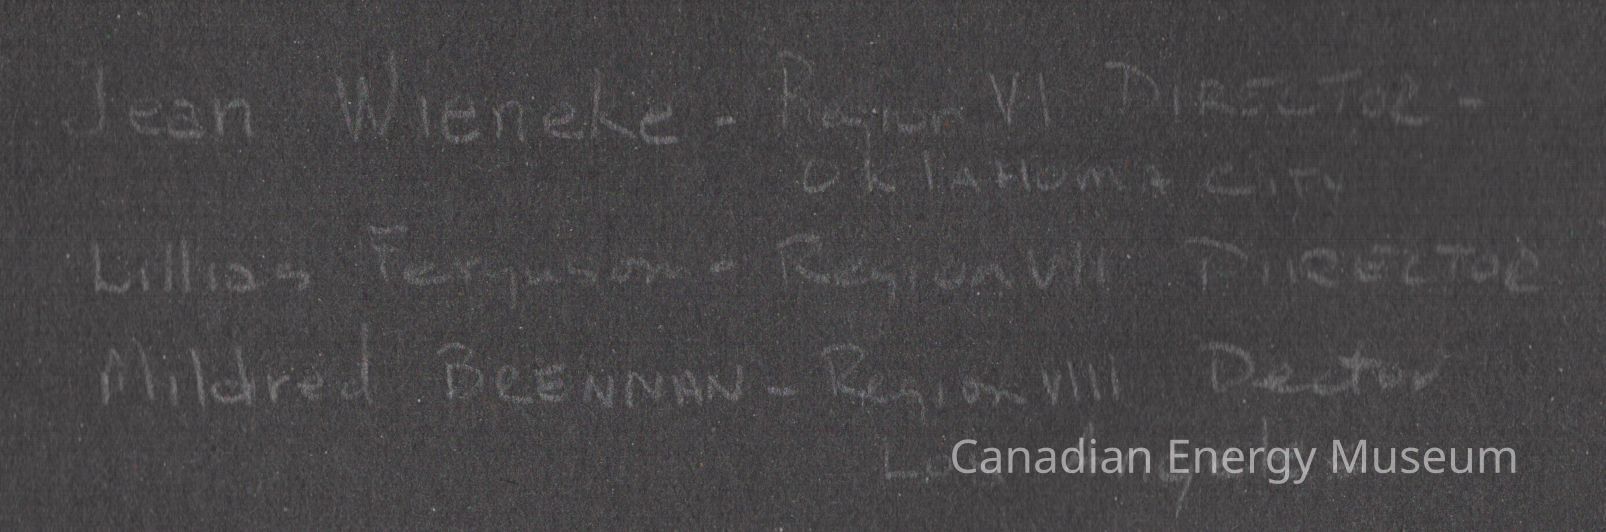 Jean Wieneke - Region VI DIRECTOR -
OKLAHOMA CITY
Lillian Ferguson - Region VII DIRECTOR
Mildred BRENNAN - Region VIIII Dector
Canadian Energy Museum